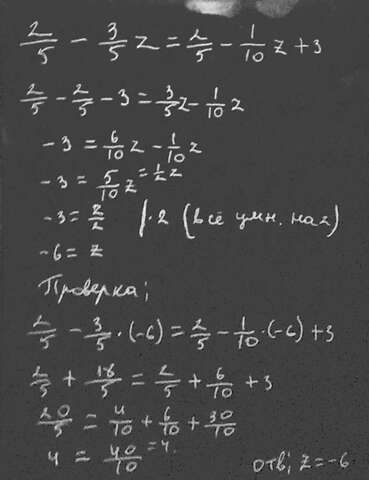 2/5 - 3/5 z = 2/5 - 1/10 z + 3
2/5 - 2/5 - 3 = 3/5 z - 1/10 z
-3 = 6/10 z - 1/10 z
-3 = 5/10 z = 1/2 z
-3 = z/2 |·2 (всё умн. на 2)
-6 = z
Проверка;
2/5 - 3/5 · (-6) = 2/5 - 1/10 · (-6) + 3
2/5 + 18/5 = 2/5 + 6/10 + 3
20/5 = 4/10 + 6/10 + 30/10
4 = 40/10 = 4.
отв; z = -6